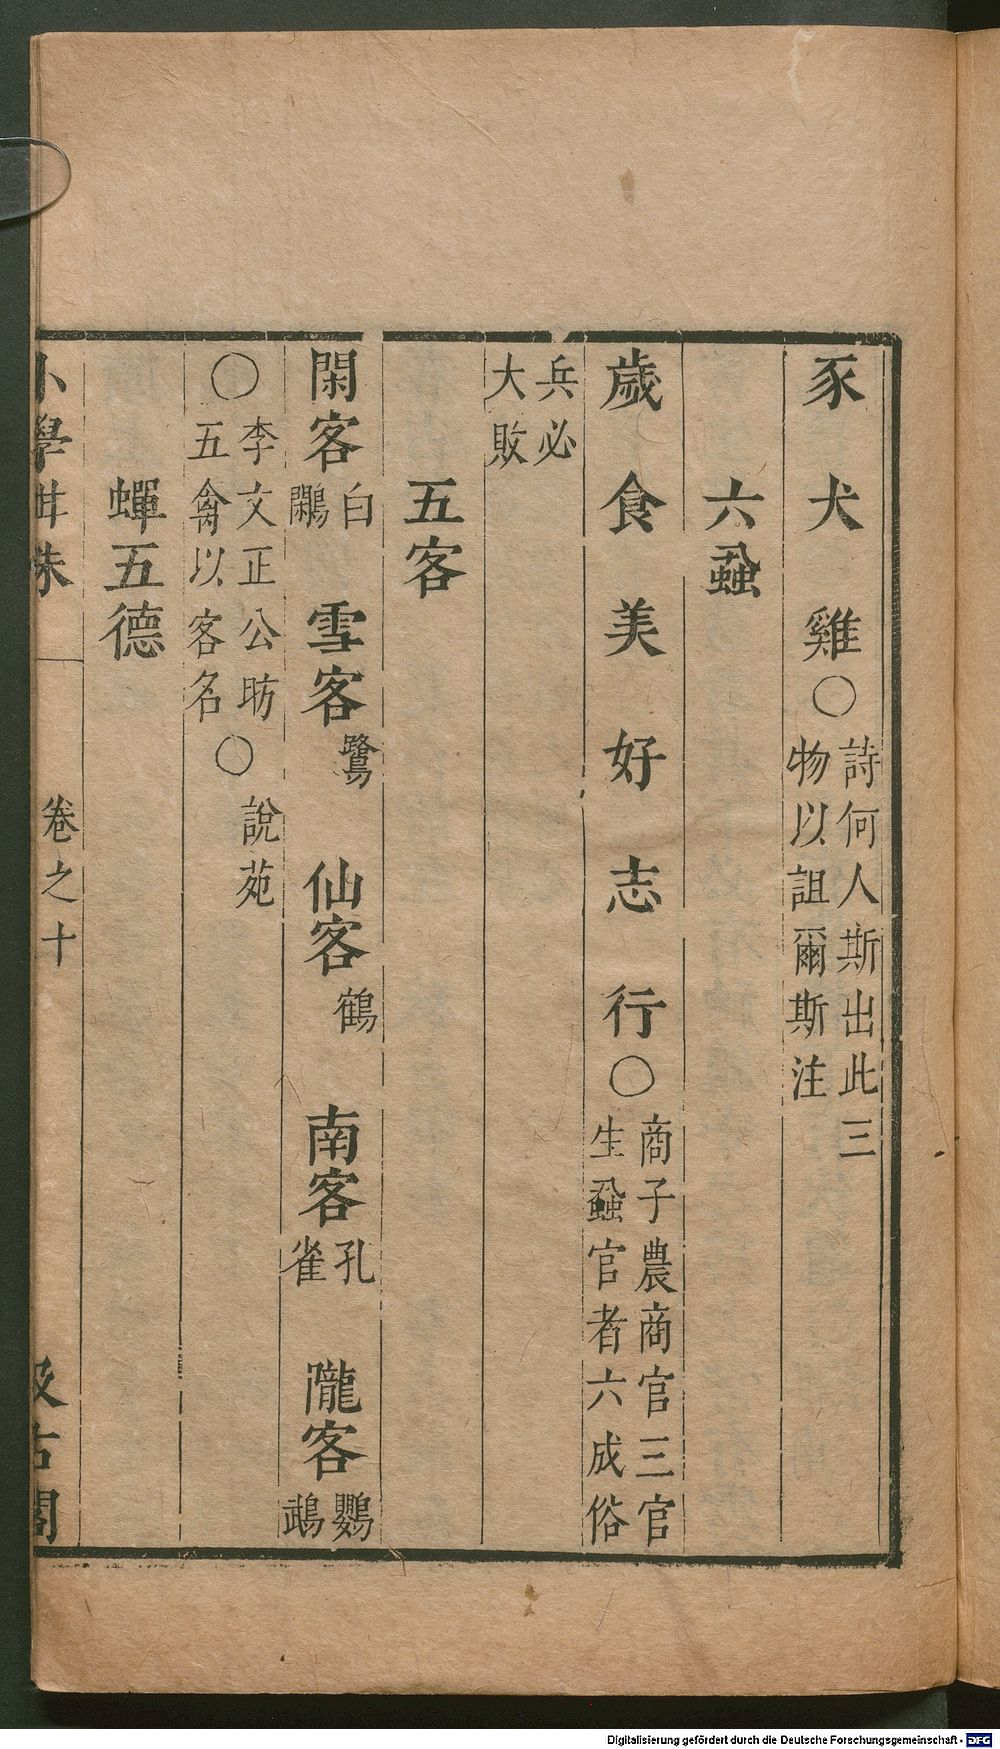 豕犬雞○詩何人斯出此三物以詛爾斯注
六蝨
歲食美好志行○商子農商官三官生蝨官者六成俗
兵必大敗
五客
閑客白鷴雪客鷺仙客鶴南客孔雀隴客鸚鵡
○李文正公昉五禽以客名○說苑
蟬五德
小學紺珠 卷之十 汲古閣
Digitalisierung gefördert durch die Deutsche Forschungsgemeinschaft - DFG